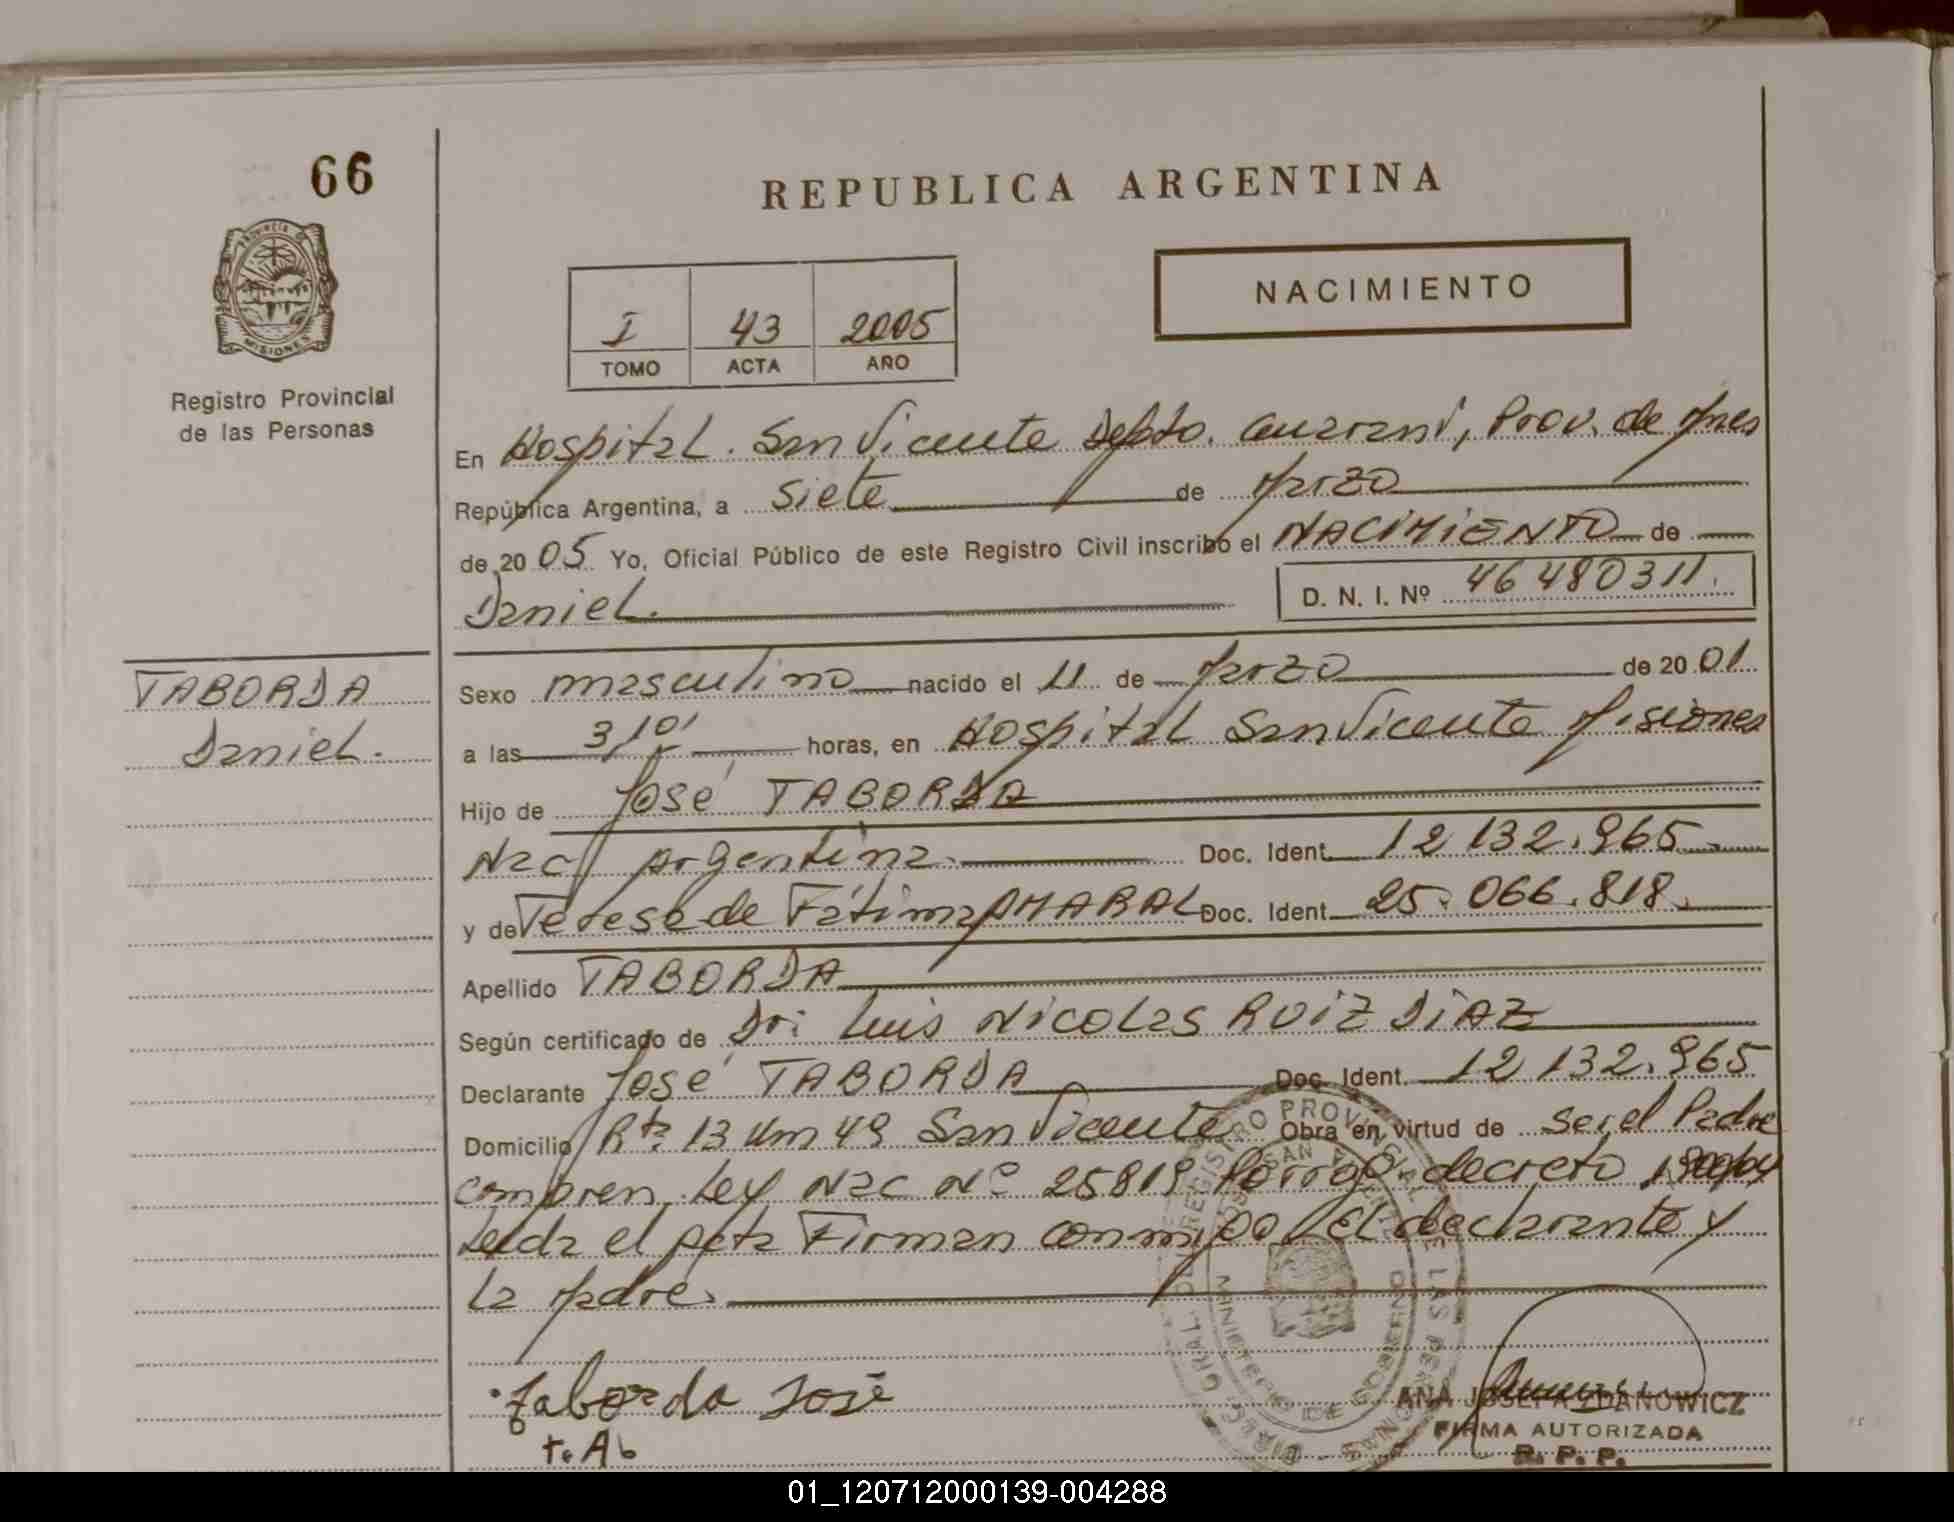 66
REPUBLICA ARGENTINA
PROVINCIA DE
MISIONES
Registro Provincial
de las Personas
I 43 2005
TOMO ACTA AÑO
NACIMIENTO
En Hospital. San Vicente Depto. Guarani, Prov. de Mnes
República Argentina, a siete de Marzo
de 2005 Yo, Oficial Público de este Registro Civil inscribo el NACIMIENTO de
Daniel. D. N. I. Nº 46480311.
TABORDA
Daniel.
Sexo masculino nacido el 11 de Marzo de 2001
a las 3,10' horas, en Hospital San Vicente Misiones
Hijo de José TABORDA
Nac Argentina. Doc. Ident. 12 132.965
y de Teresa de Fátima AMARAL Doc. Ident. 25.066.818.
Apellido TABORDA
Según certificado de Dr: Luis Nicolas RUIZ DIAZ
Declarante José TABORDA Doc. Ident. 12 132.965
Domicilio Rta 13 Km 49 San Vicente Obra en virtud de ser el Padre
compren. Ley Nac Nº 25819 Porrog. decreto
Leida el Acta Firman conmigo El declarante y
La Madre.
Taborda José
t. Ab
ANA JOSEFA ZDANOWICZ
FIRMA AUTORIZADA
R. P. P.
01_120712000139-004288